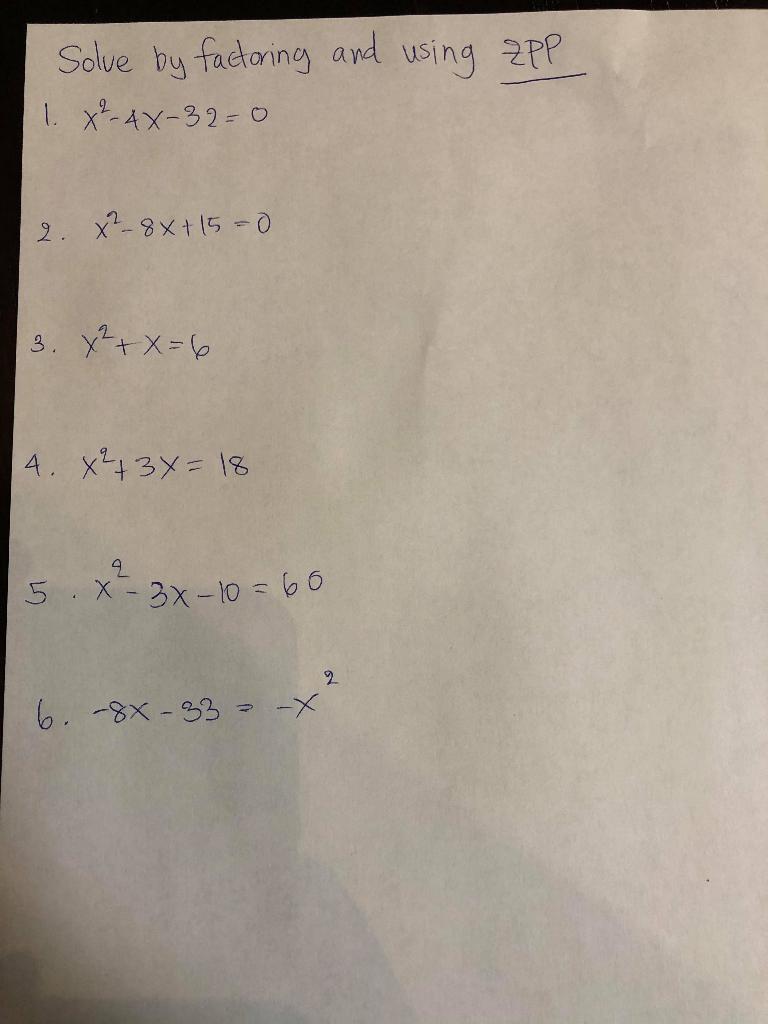 Solve by factoring and using ZPP
1. x²-4x-32=0
2. x²-8x+15=0
3. x²+x=6
4. x²+3x=18
5. x²-3x-10=60
6. -8x-33=-x²